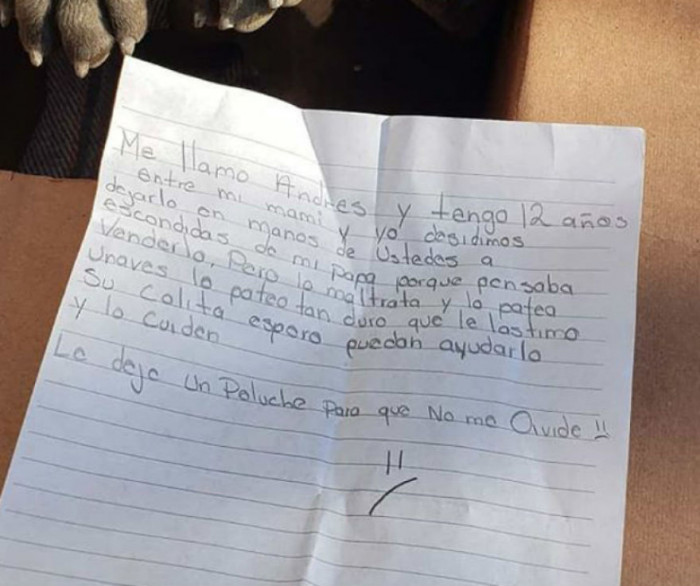 Me llamo Andres y tengo 12 años
entre mi mami y yo desidimos
dejarlo en manos de Ustedes a
escondidas de mi papa porque pensaba
Venderlo, Pero lo maltrata y lo patea
unaves lo pateo tan duro que le lastimo
Su Colita espero puedan ayudarlo
y lo Cuiden
Le dejo un Peluche Para que No me Olvide !!